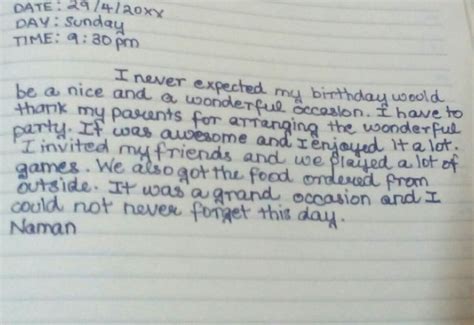 DATE: 29/4/20xx
DAY: Sunday
TIME: 9:30pm
I never expected my birthday would
be a nice and a wonderful occasion. I have to
thank my parents for arranging the wonderful
party. It was awesome and I enjoyed it a lot.
I invited my friends and we played a lot of
games. We also got the food ordered from
outside. It was a grand occasion and I
could not never forget this day.
Naman